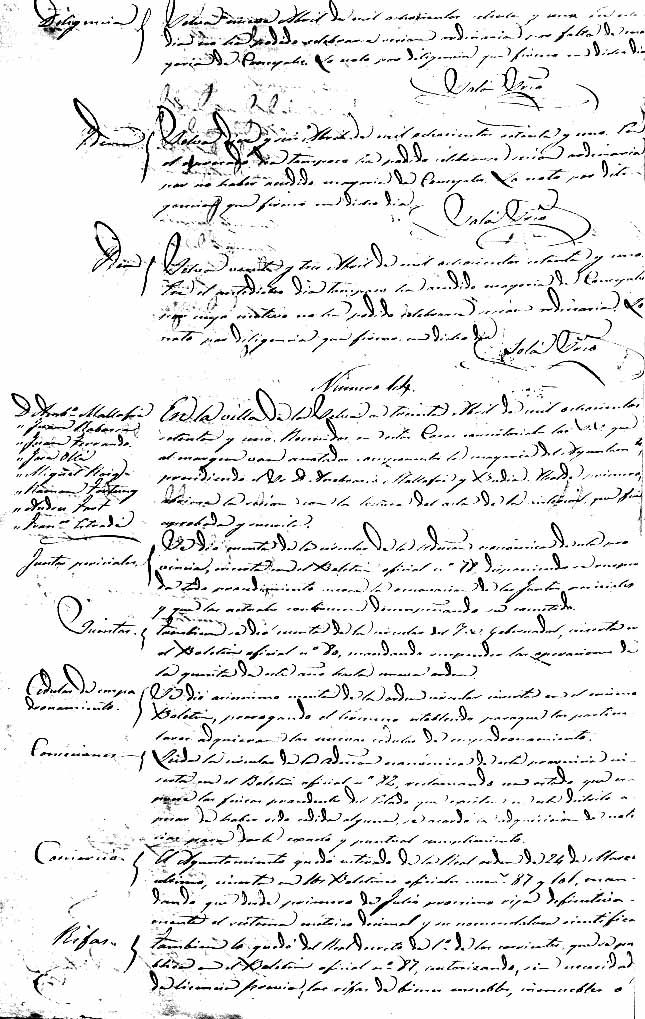 Diligencia
Selva nueve Abril de mil ochocientos setenta y uno. En este
dia no ha podido celebrarse sesion ordinaria por falta de ma-
yoria de Concejales. Lo noto por diligencia que firmo en dicho dia
Solá Srio
Idem
Selva diez y seis Abril de mil ochocientos setenta y uno. En
el dia tampoco ha podido celebrarse sesion ordinaria
por no haber acudido mayoria de Concejales. Lo noto por dili-
gencia que firmo en dicho dia
Solá Srio
Idem
Selva veinte y tres Abril de mil ochocientos setenta y uno.
En el antedicho dia tampoco ha acudido mayoria de Concejales
por cuyo motivo no ha podido celebrarse sesion ordinaria. Lo
noto por diligencia que firmo en dicho dia
Solá Srio
Numero 14.
D. Anto. Mallafré
" Juan
" Juan
" José
" Miguel Roig
" Ramon
"
" Fran.co
En la villa de la Selva a treinta Abril de mil ochocientos
setenta y uno. Reunidos en estas Casas consistoriales los que
al margen van anotados componiendo la mayoria del Ayuntam.to
presidiendo el Sr. D. Antonio Mallafré y Alcalde primero,
abriose la sesion con la lectura del acta de la anterior, que fué
aprobada y
Juntas periciales
Se dió cuenta de la circular de la Admon. económica de esta pro-
vincia, inserta en el Boletin oficial n.º 78 disponiendo se suspen-
da todo procedimiento acerca la renovacion de las Juntas periciales
y que las actuales continuen desempeñando su cometido.
Quintas.
Tambien se dió cuenta de la circular del Sr. Gobernador, inserta en
el Boletin oficial n.º 80, mandando suspender las operaciones de
la quinta de este año hasta nueva orden.
Cédulas de empa-
dronamiento.
Se dió asimismo cuenta de la orden circular inserta en el mismo
Boletin, prorogando el termino establecido para que los particu-
lares adquieran las nuevas cédulas de empadronamiento.
Comisiones
Leida la circular de la Admon. económica de esta provincia in-
serta en el Boletin oficial n.º 82, reclamando un estado que es-
prese las fincas procedentes del Estado que existen en este distrito á
pesar de haber sido vendidas algunas, se acordó la adquisicion de noti-
cias para darle exacto y puntual cumplimiento.
Comercio.
El Ayuntamiento quedó enterado de la Real orden de 24 de Marzo
ultimo, inserta en los Boletines oficiales num.s 87 y 101, man-
dando que desde primero de Julio proximo rija definitiva-
mente el sistema métrico decimal y su nomenclatura científica
Rifas.
Tambien lo quedó del Real decreto de 1.º de los corrientes, que se pu-
blica en el Boletin oficial n.º 87, autorizando, sin necesidad
de licencia previa, las rifas de bienes muebles, inmuebles ó